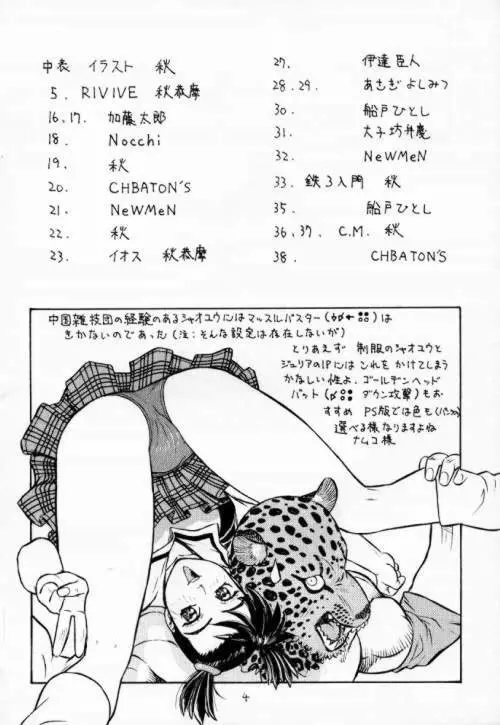 中表 イラスト 秋
5. RIVIVE 秋恭摩
16,17. 加藤太郎
18. Nocchi
19. 秋
20. CHBATON'S
21. NeWMeN
22. 秋
23. イオス 秋恭摩
27. 伊達臣人
28.29. あさぎよしみつ
30. 船戸ひとし
31. 大子坊弁慶
32. NeWMeN
33. 鉄3入門 秋
35. 船戸ひとし
36,37. C.M. 秋
38. CHBATON'S
中国雑技団の経験のあるシャオユウにはマッスルバスター( )は
きかないのであった(注:そんな設定は存在しないが)
とりあえず 制服のシャオユウと
ジュリアの1Pには これを かけてしまう
かなしい性よ. ゴールデンヘッド
バット( ダウン攻撃)もお
すすめ PS版では色も(パンツの)
選べる様なりますよね
ナムコ様
4